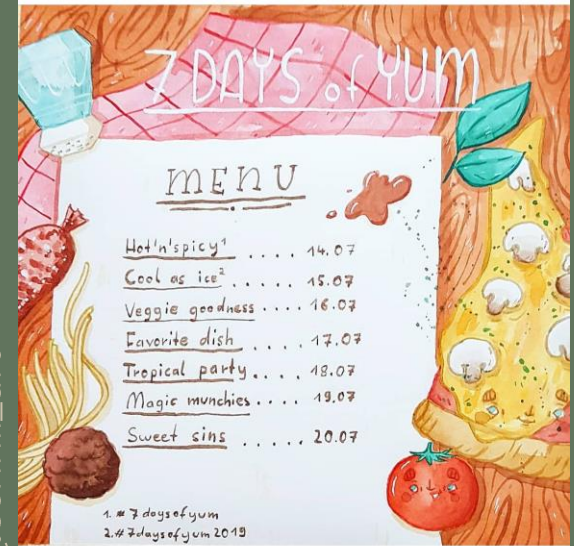 7 DAYS of YUM
MENU
Hot'n'spicy¹ .... 14.07
Cool as ice² ..... 15.07
Veggie goodness .... 16.07
Favorite dish .... 17.07
Tropical party.... 18.07
Magic munchies.... 19.07
Sweet sins ..... 20.07
1. # 7daysofyum
2. # 7daysofyum2019